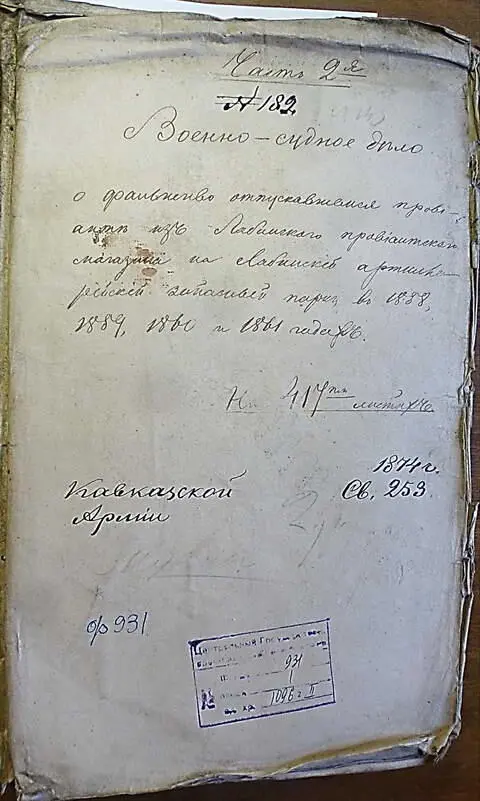 Часть 2я
№ 182
Военно-судное дѣло
о фальшиво отпускавшемся прові-
антѣ изъ Лабинскаго провіантскаго
магазина на Лабинскій артилле-
рейскій запасный паркъ въ 1858,
1859, 1860 и 1861 годахъ.
На 417ти листахъ.
1874 г.
Кавказской Св. 253
Арміи
ф 931
Центральный Государствен.
931
1
№ 1096 г. II
ед. хр.